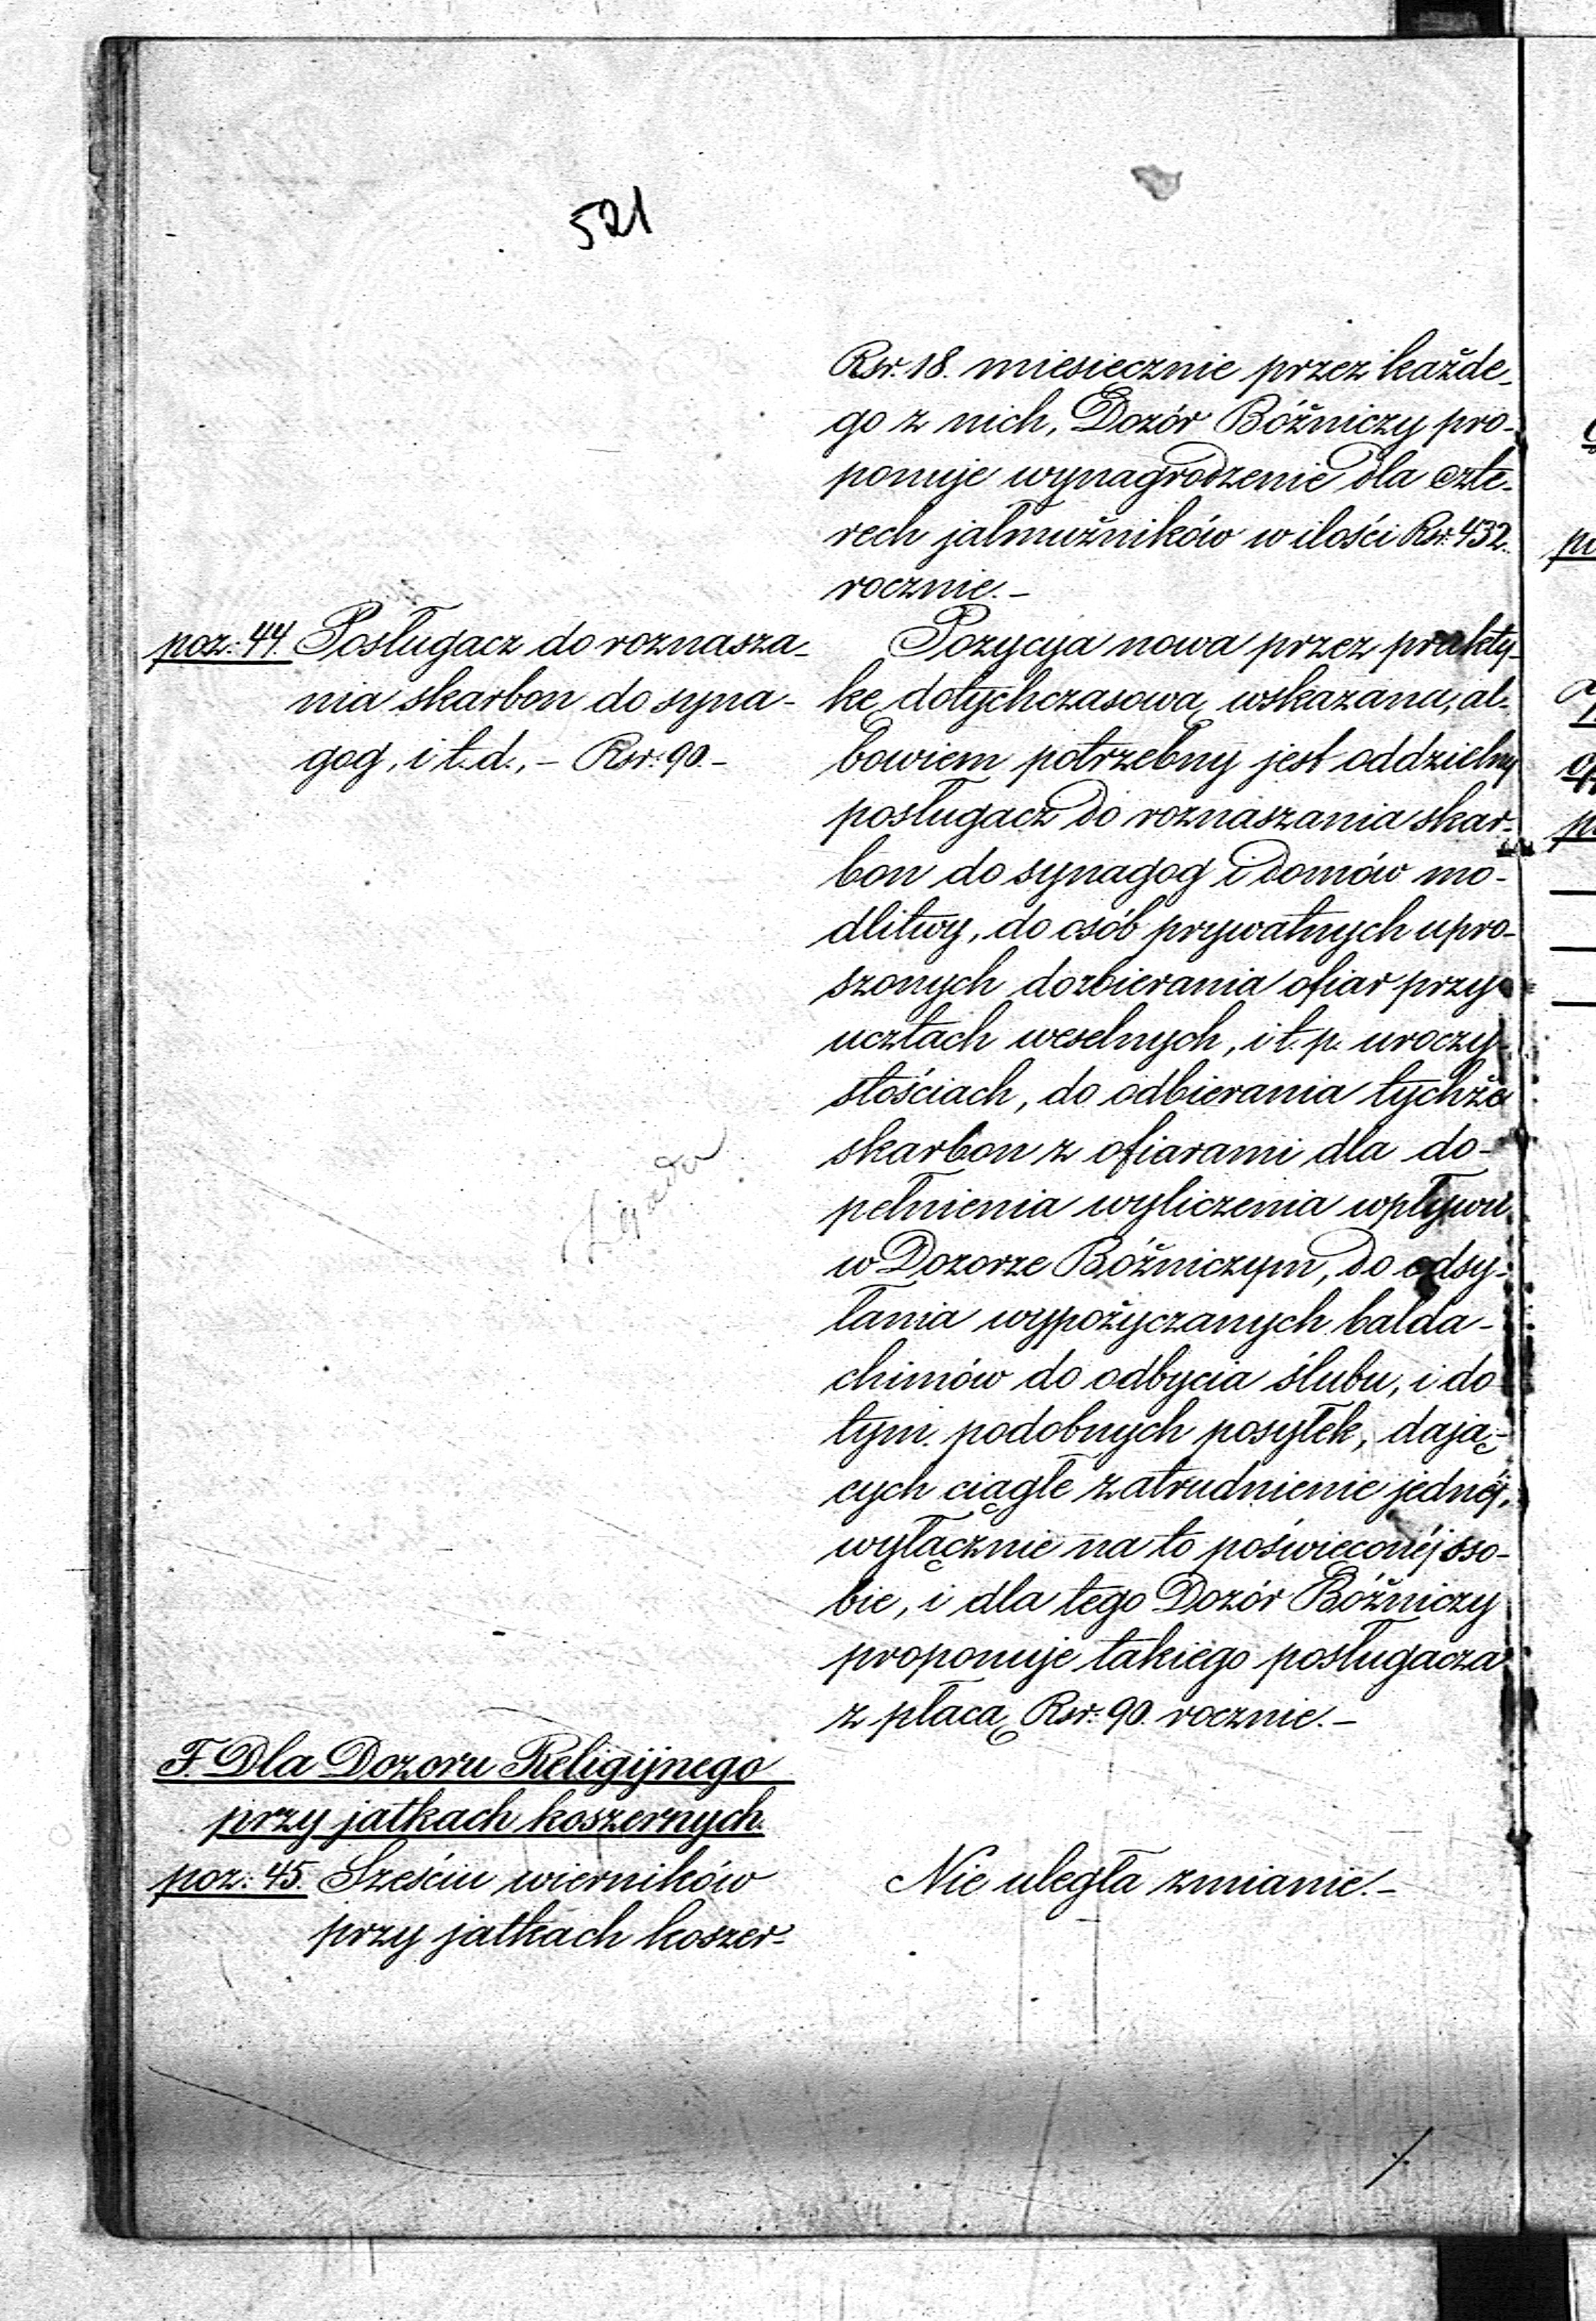 521
Rsr. 18. miesiecznie przez każde-
go z nich, Dozór Bóżniczy pro-
ponuje wynagrodzenie dla czte-
rech jałmużników w ilości Rsr. 432.
rocznie.-
poz: 44. Posługacz do roznasza-
nia skarbon do syna-
gog, i t. d., - Rsr: 90.-
Pozycyja nowa przez prakty-
kę dotychczasową wskazana, al-
bowiem potrzebny jest oddzielny
posługacz do roznaszania skar-
bon do synagog i domów mo-
dlitwy, do osób prywatnych upro-
szonych do zbierania ofiar przy
ucztach weselnych, i t. p. uroczy-
stościach, do odbierania tychże
skarbon z ofiarami dla do-
pełnienia wyliczenia wpływu
w Dozorze Bóżniczym, do odsy-
łania wypożyczanych balda-
chimów do odbycia ślubu, i do
tym podobnych posyłek, dają-
cych ciągłe zatrudnienie jednéj,
wyłącznie na to poświęconéj oso-
bie, i dla tego Dozór Bóżniczy
proponuje takiego posługacza
z płacą Rsr: 90. rocznie.-
F. Dla Dozoru Religijnego
przy jatkach koszernych.
poz: 45. Sześciu wierników
przy jatkach koszer-
Nie uległa zmianie.-